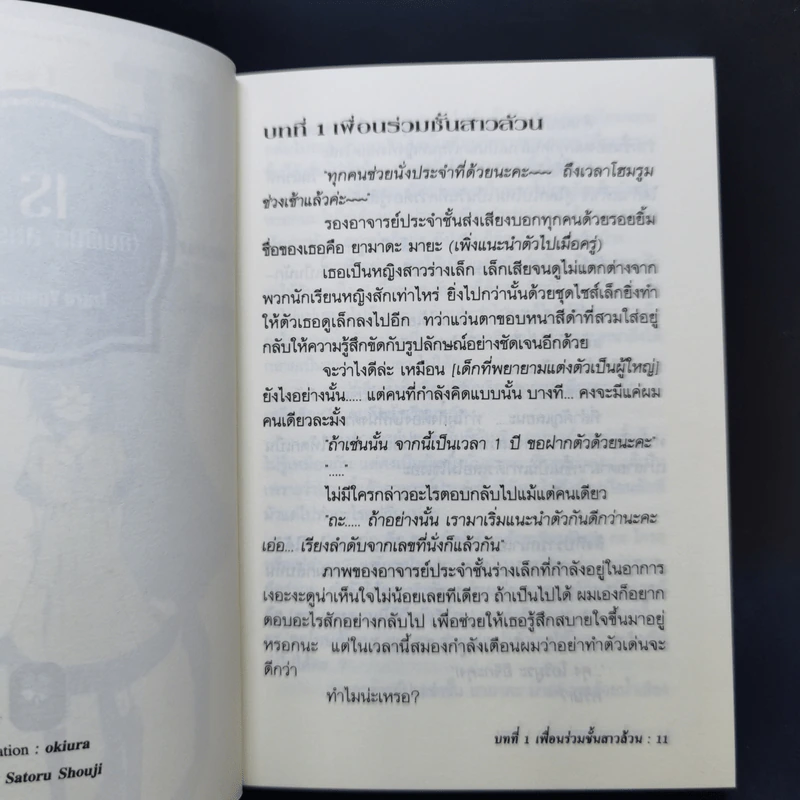 ation : okiura
Satoru Shouji
บทที่ 1 เพื่อนร่วมชั้นสาวล้วน
"ทุกคนช่วยนั่งประจำที่ด้วยนะคะ~~~ ถึงเวลาโฮมรูม
ช่วงเช้าแล้วค่ะ~~~"
รองอาจารย์ประจำชั้นส่งเสียงบอกทุกคนด้วยรอยยิ้ม
ชื่อของเธอคือ ยามาดะ มายะ (เพิ่งแนะนำตัวไปเมื่อครู่)
เธอเป็นหญิงสาวร่างเล็ก เล็กเสียจนดูไม่แตกต่างจาก
พวกนักเรียนหญิงสักเท่าไหร่ ยิ่งไปกว่านั้นด้วยชุดไซส์เล็กยิ่งทำ
ให้ตัวเธอดูเล็กลงไปอีก ทว่าแว่นตาขอบหนาสีดำที่สวมใส่อยู่
กลับให้ความรู้สึกขัดกับรูปลักษณ์อย่างชัดเจนอีกด้วย
จะว่าไงดีล่ะ เหมือน [เด็กที่พยายามแต่งตัวเป็นผู้ใหญ่]
ยังไงอย่างนั้น..... แต่คนที่กำลังคิดแบบนั้น บางที... คงจะมีแค่ผม
คนเดียวละมั้ง
"ถ้าเช่นนั้น จากนี้เป็นเวลา 1 ปี ขอฝากตัวด้วยนะคะ"
"....."
ไม่มีใครกล่าวอะไรตอบกลับไปแม้แต่คนเดียว
"ถะ..... ถ้าอย่างนั้น เรามาเริ่มแนะนำตัวกันดีกว่านะคะ
เอ่อ... เรียงลำดับจากเลขที่นั่งก็แล้วกัน"
ภาพของอาจารย์ประจำชั้นร่างเล็กที่กำลังอยู่ในอาการ
เงอะงะดูน่าเห็นใจไม่น้อยเลยทีเดียว ถ้าเป็นไปได้ ผมเองก็อยาก
ตอบอะไรสักอย่างกลับไป เพื่อช่วยให้เธอรู้สึกสบายใจขึ้นมาอยู่
หรอกนะ แต่ในเวลานี้สมองกำลังเตือนผมว่าอย่าทำตัวเด่นจะ
ดีกว่า
ทำไมน่ะเหรอ?
บทที่ 1 เพื่อนร่วมชั้นสาวล้วน : 11